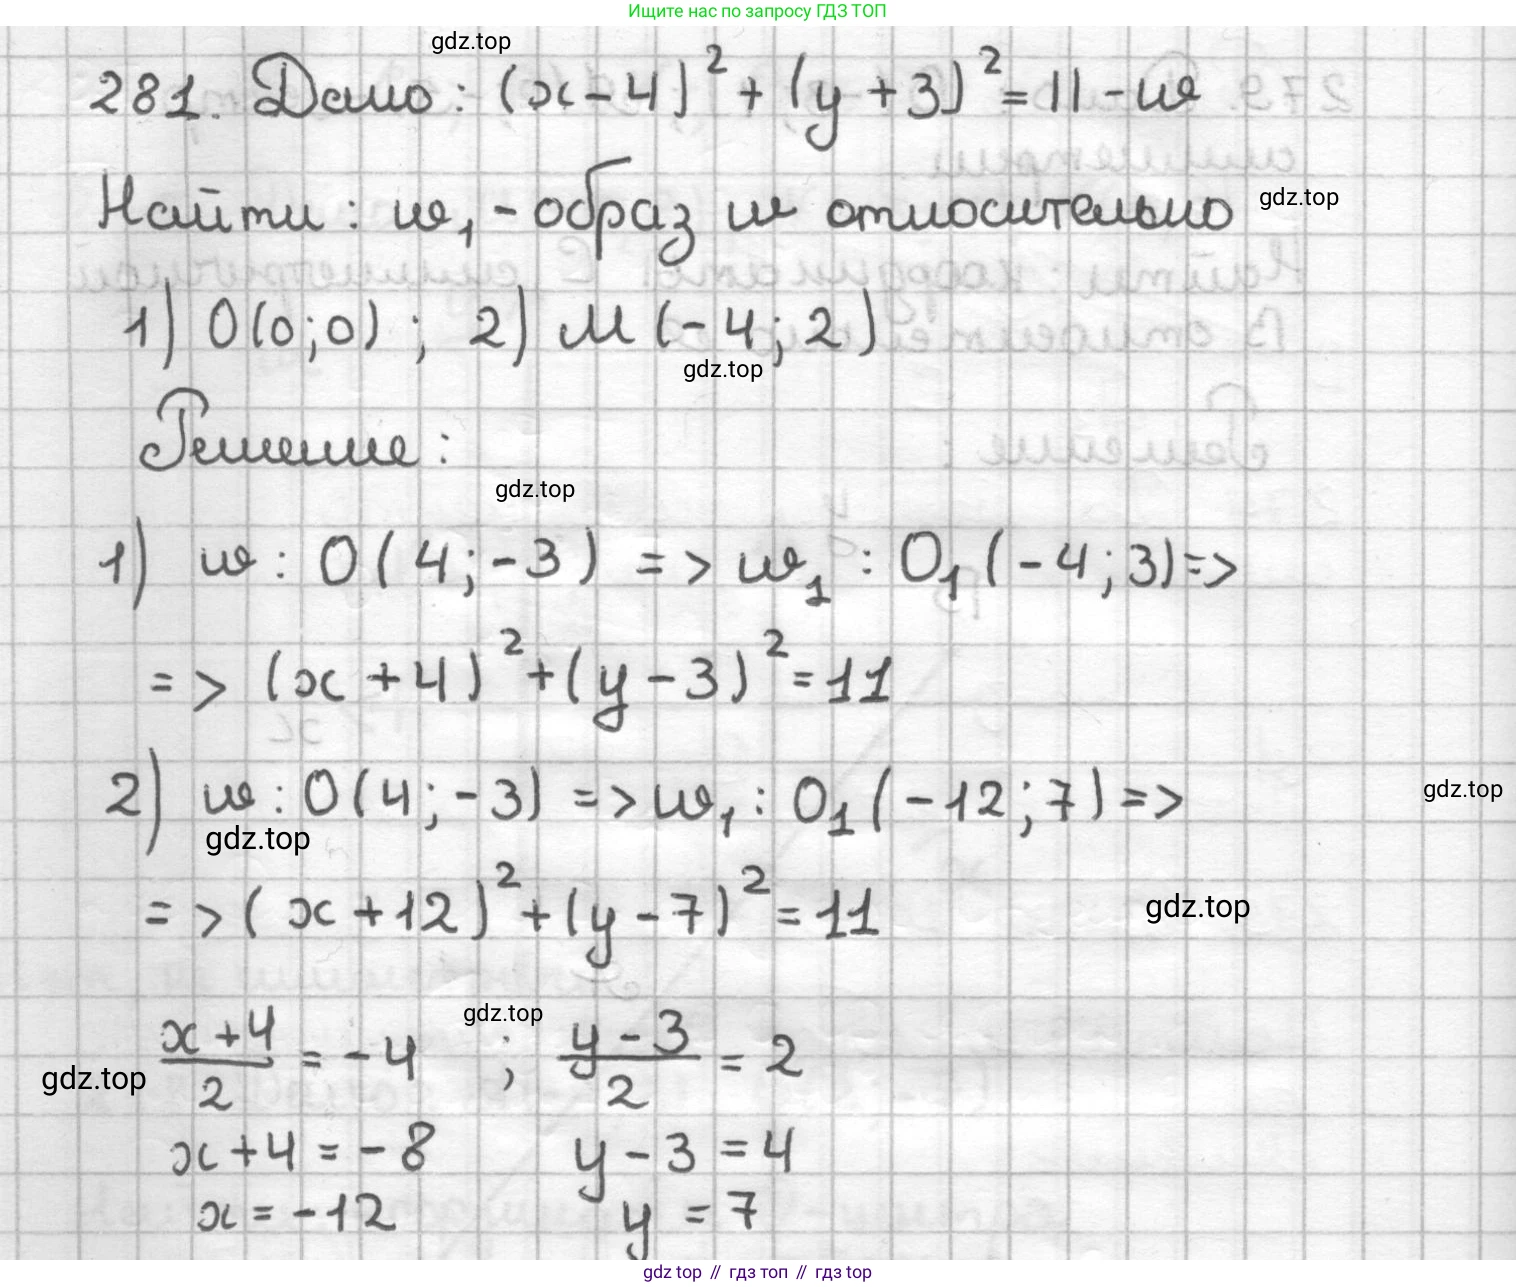 Ищите нас по запросу ГДЗ ТОП
gdz.top
281. Дано: (x-4)²+(y+3)²=11-w
Найти: w₁-образ w относительно
gdz.top
1) O(0;0); 2) M(-4;2)
gdz.top
Решение:
gdz.top
1) w: O(4;-3) => w₁: O₁(-4;3)=>
=> (x+4)²+(y-3)²=11
2) w: O(4;-3) => w₁: O₁(-12;7)=>
gdz.top
gdz.top
=> (x+12)²+(y-7)²=11
gdz.top
gdz.top
(x+4)/2 = -4 ; (y-3)/2 = 2
gdz.top
x+4=-8 y-3=4
x=-12 y=7
gdz top // гдз топ // гдз top